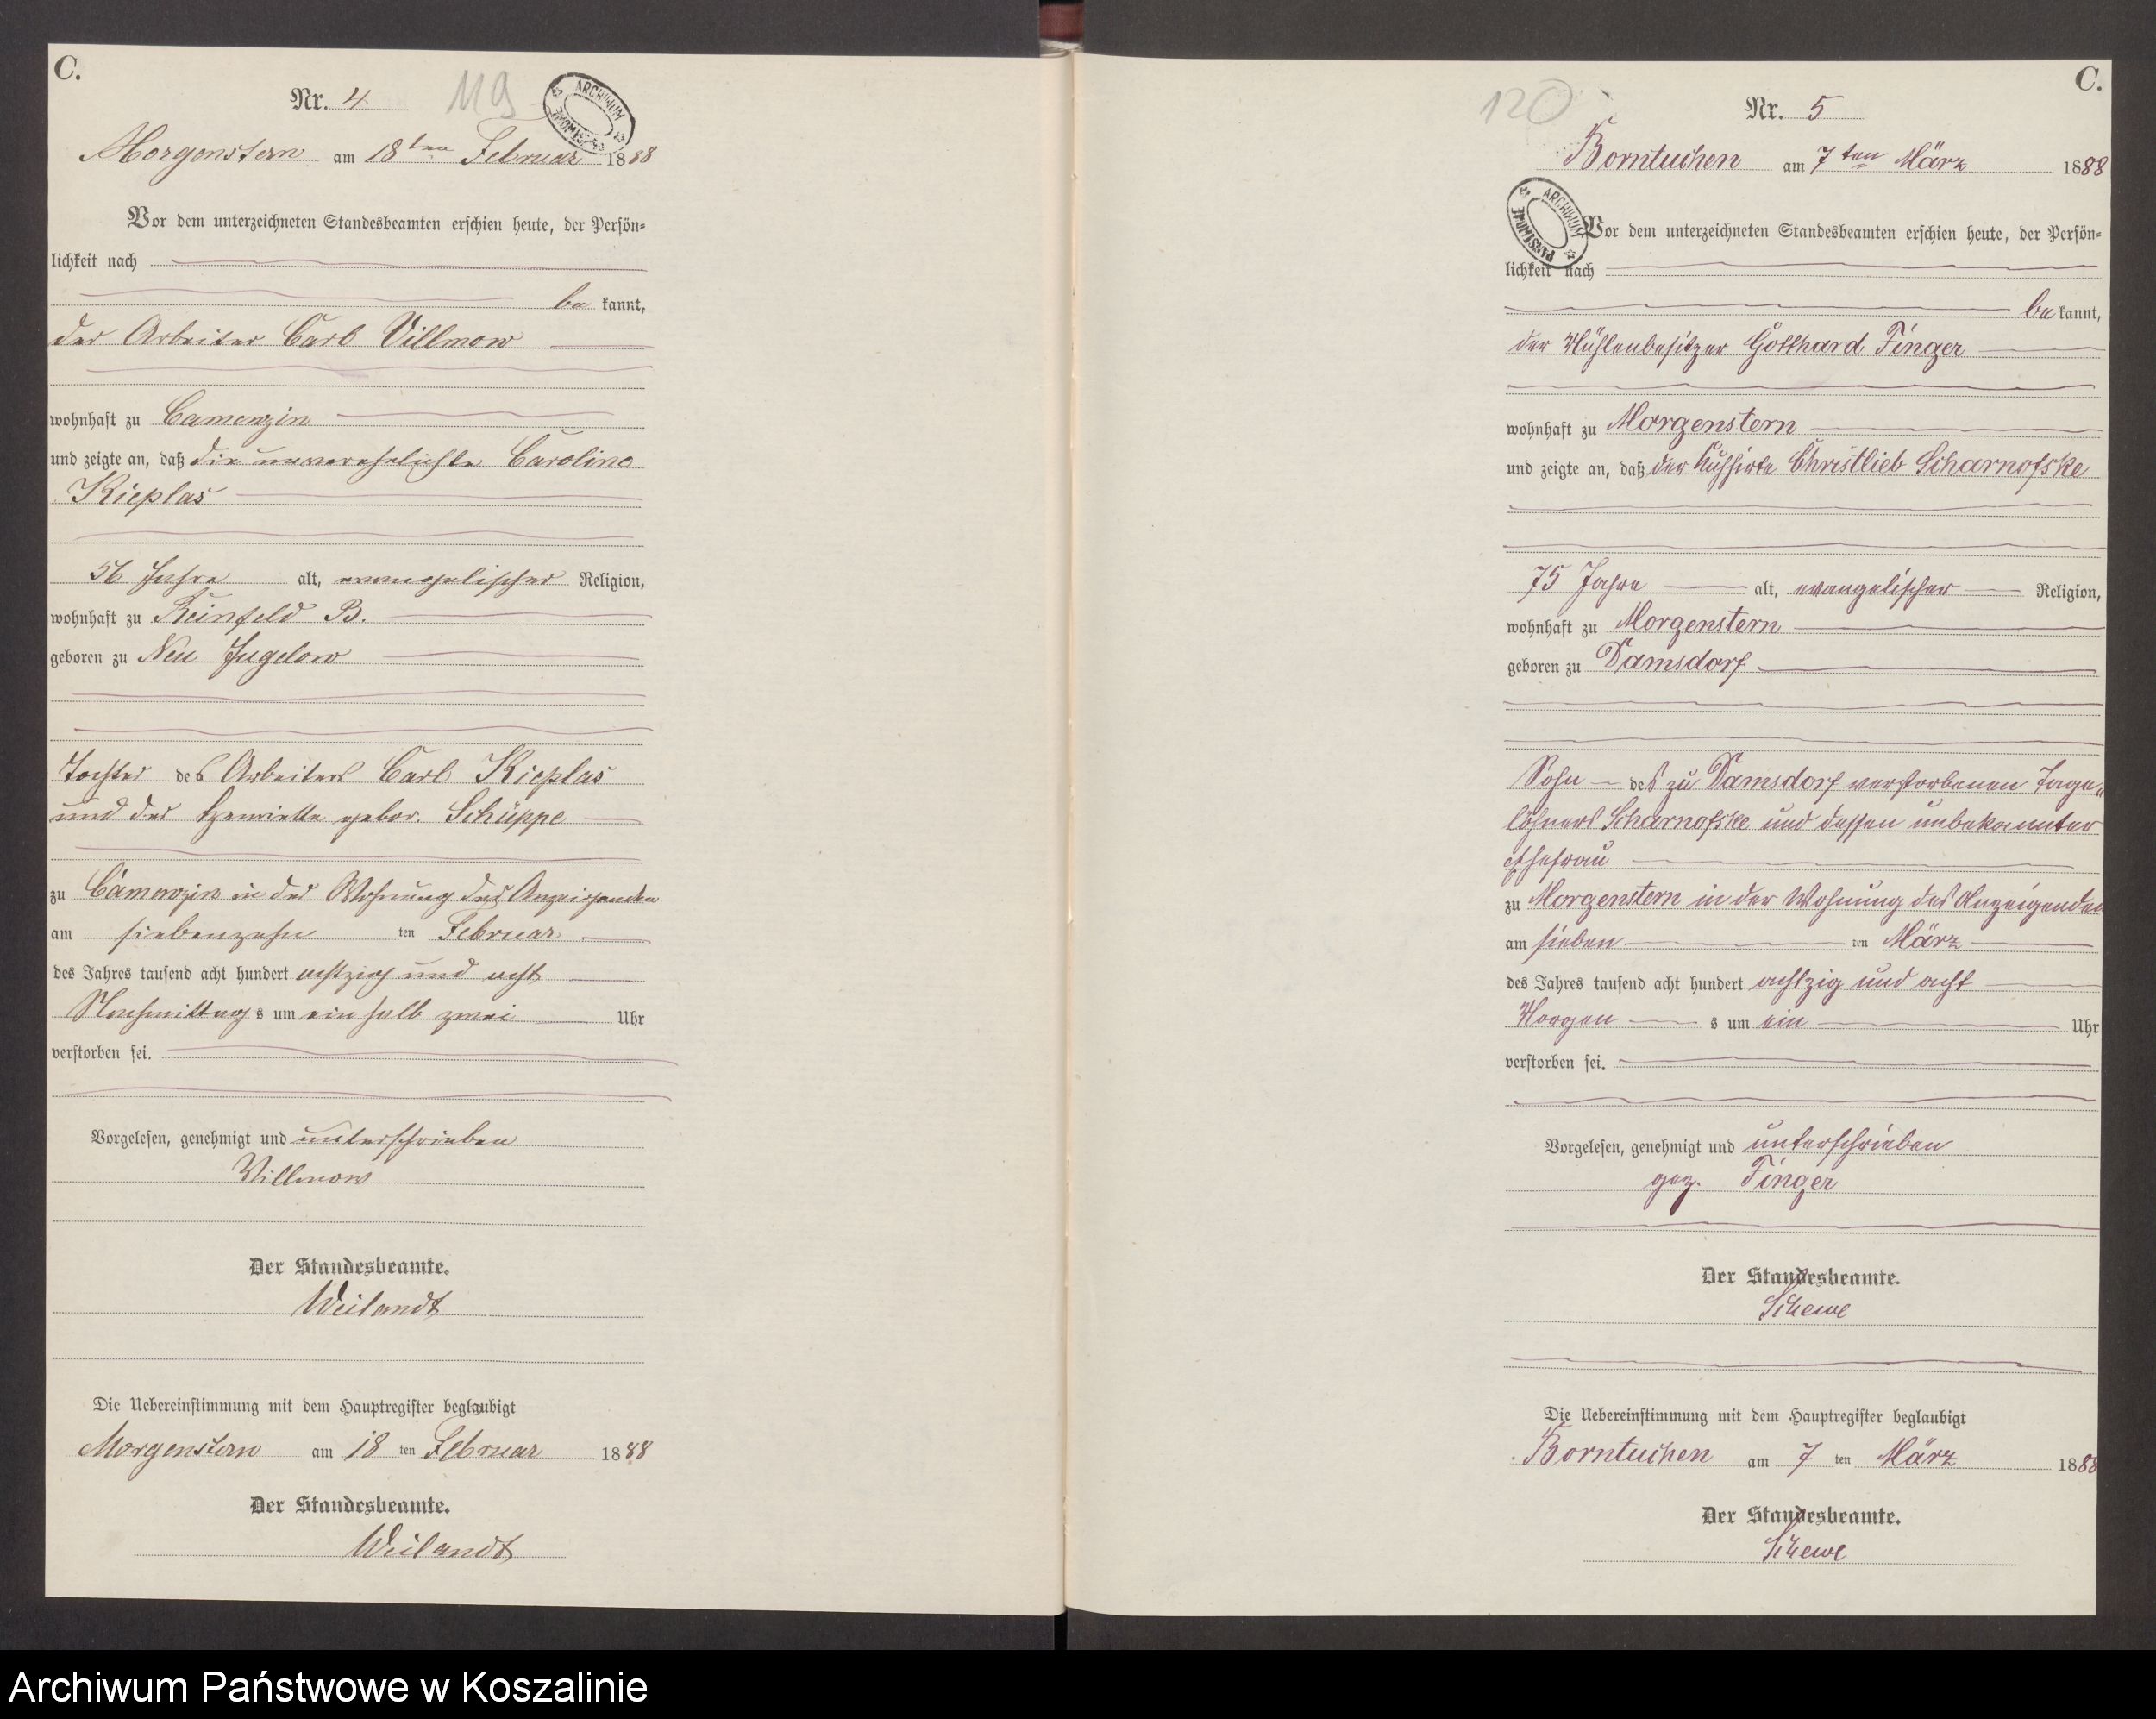 C.
Nr. 4.
119
ARCHIWUM PAŃSTWOWE
Morgenstern am 18ten Februar 1888
Vor dem unterzeichneten Standesbeamten erschien heute, der Persön-
lichkeit nach
be kannt,
der Arbeiter Carl Villmow
wohnhaft zu Camenzin
und zeigte an, daß die unverehelichte Caroline
Kieplas
56 Jahre alt, evangelischer Religion,
wohnhaft zu Reinfeld B.
geboren zu Neu Jugelow
Tochter des Arbeiters Carl Kieplas
und der Henriette gebor. Schüppe
zu Camenzin in der Wohnung des Anzeigenden
am siebenzehn ten Februar
des Jahres tausend acht hundert achtzig und acht
Nachmittag s um ein halb zwei Uhr
verstorben sei.
Vorgelesen, genehmigt und unterschrieben
Villmow
Der Standesbeamte.
Weilandt
Die Uebereinstimmung mit dem Hauptregister beglaubigt
Morgenstern am 18 ten Februar 1888
Der Standesbeamte.
Weilandt
C.
120
Nr. 5
Borntuchen am 7ten März 1888
ARCHIWUM PAŃSTWOWE
Vor dem unterzeichneten Standesbeamten erschien heute, der Persön-
lichkeit nach
be kannt,
der Mühlenbesitzer Gotthard Finger
wohnhaft zu Morgenstern
und zeigte an, daß der Kuhhirte Christlieb Scharnofske
75 Jahre alt, evangelischer Religion,
wohnhaft zu Morgenstern
geboren zu Damsdorf
Sohn des zu Damsdorf verstorbenen Tage-
löhners Scharnofske und dessen unbekannter
Ehefrau
zu Morgenstern in der Wohnung des Anzeigenden
am sieben ten März
des Jahres tausend acht hundert achtzig und acht
Morgen s um ein Uhr
verstorben sei.
Vorgelesen, genehmigt und unterschrieben
gez. Finger
Der Standesbeamte.
Schewe
Die Uebereinstimmung mit dem Hauptregister beglaubigt
Borntuchen am 7 ten März 1888
Der Standesbeamte.
Schewe
Archiwum Państwowe w Koszalinie